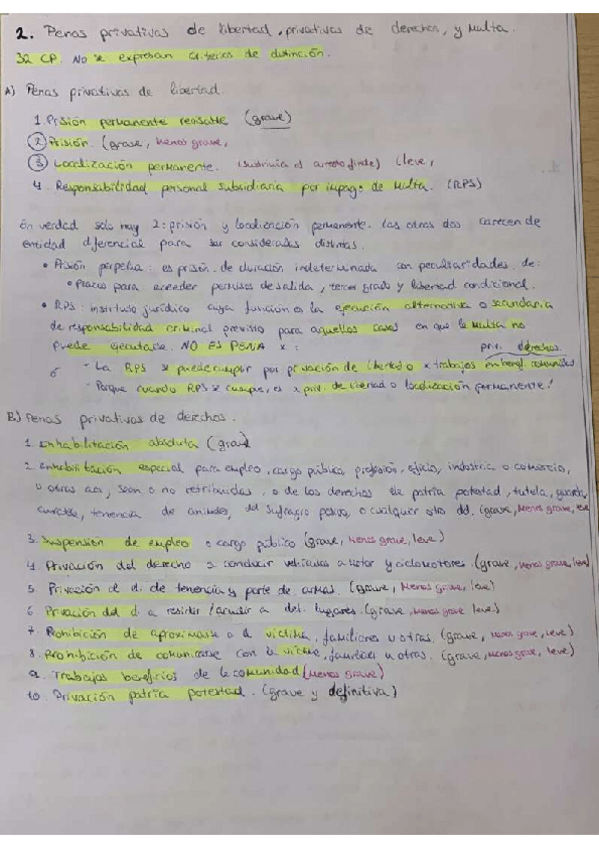 2. Penas privativas de libertad, privativas de derechos, y Multa.
32 CP. No se expresan criterios de distinción.
A) Penas privativas de libertad.
1. Prisión permanente revisable (grave)
2. Prisión. (grave, menos grave,
3. Localización permanente. (sustituía el arresto finde) (leve,
4. Responsabilidad personal subsidiaria por impago de Multa. (RPS)
En verdad solo hay 2: prisión y localización permanente. Las otras dos carecen de
entidad diferencial para ser consideradas distintas.
• Prisión perpetua: es prisión de duración indeterminada con peculiaridades de:
• Plazos para acceder permisos de salida, tercer grado y libertad condicional.
• RPS: instituto jurídico cuya función es la ejecución alternativa o secundaria
de responsabilidad criminal previsto para aquellos casos en que la Multa no
puede ejecutarse. NO ES PENA x: priv. derechos.
- La RPS se puede cumplir por privación de libertad o x trabajos en beneficio comunidad
- Porque cuando RPS se cumple, es x priv. de libertad o localización permanente!
B) Penas privativas de derechos.
1. Inhabilitación absoluta (grave)
2. Inhabilitación especial para empleo, cargo público, profesión, oficio, industria o comercio,
u otras act, sean o no retribuidas, o de los derechos de patria potestad, tutela, guarda,
curatela, tenencia de animales, del sufragio pasivo, o cualquier otro d. (grave, menos grave, leve
3. Suspensión de empleo o cargo público (grave, menos grave, leve)
4. Privación del derecho a conducir vehículos a motor y ciclomotores. (grave, menos grave, leve)
5. Privación d. de tenencia y porte de armas. (grave, menos grave, leve)
6. Privación del d. a residir / acudir a det. lugares. (grave, menos grave leve)
7. Prohibición de aproximarse a la víctima, familiares u otras. (grave, menos grave, leve)
8. Prohibición de comunicarse con la víctima, familiares u otras. (grave, menos grave, leve)
9. Trabajos beneficios de la comunidad (menos grave)
10. Privación patria potestad. (grave y definitiva)